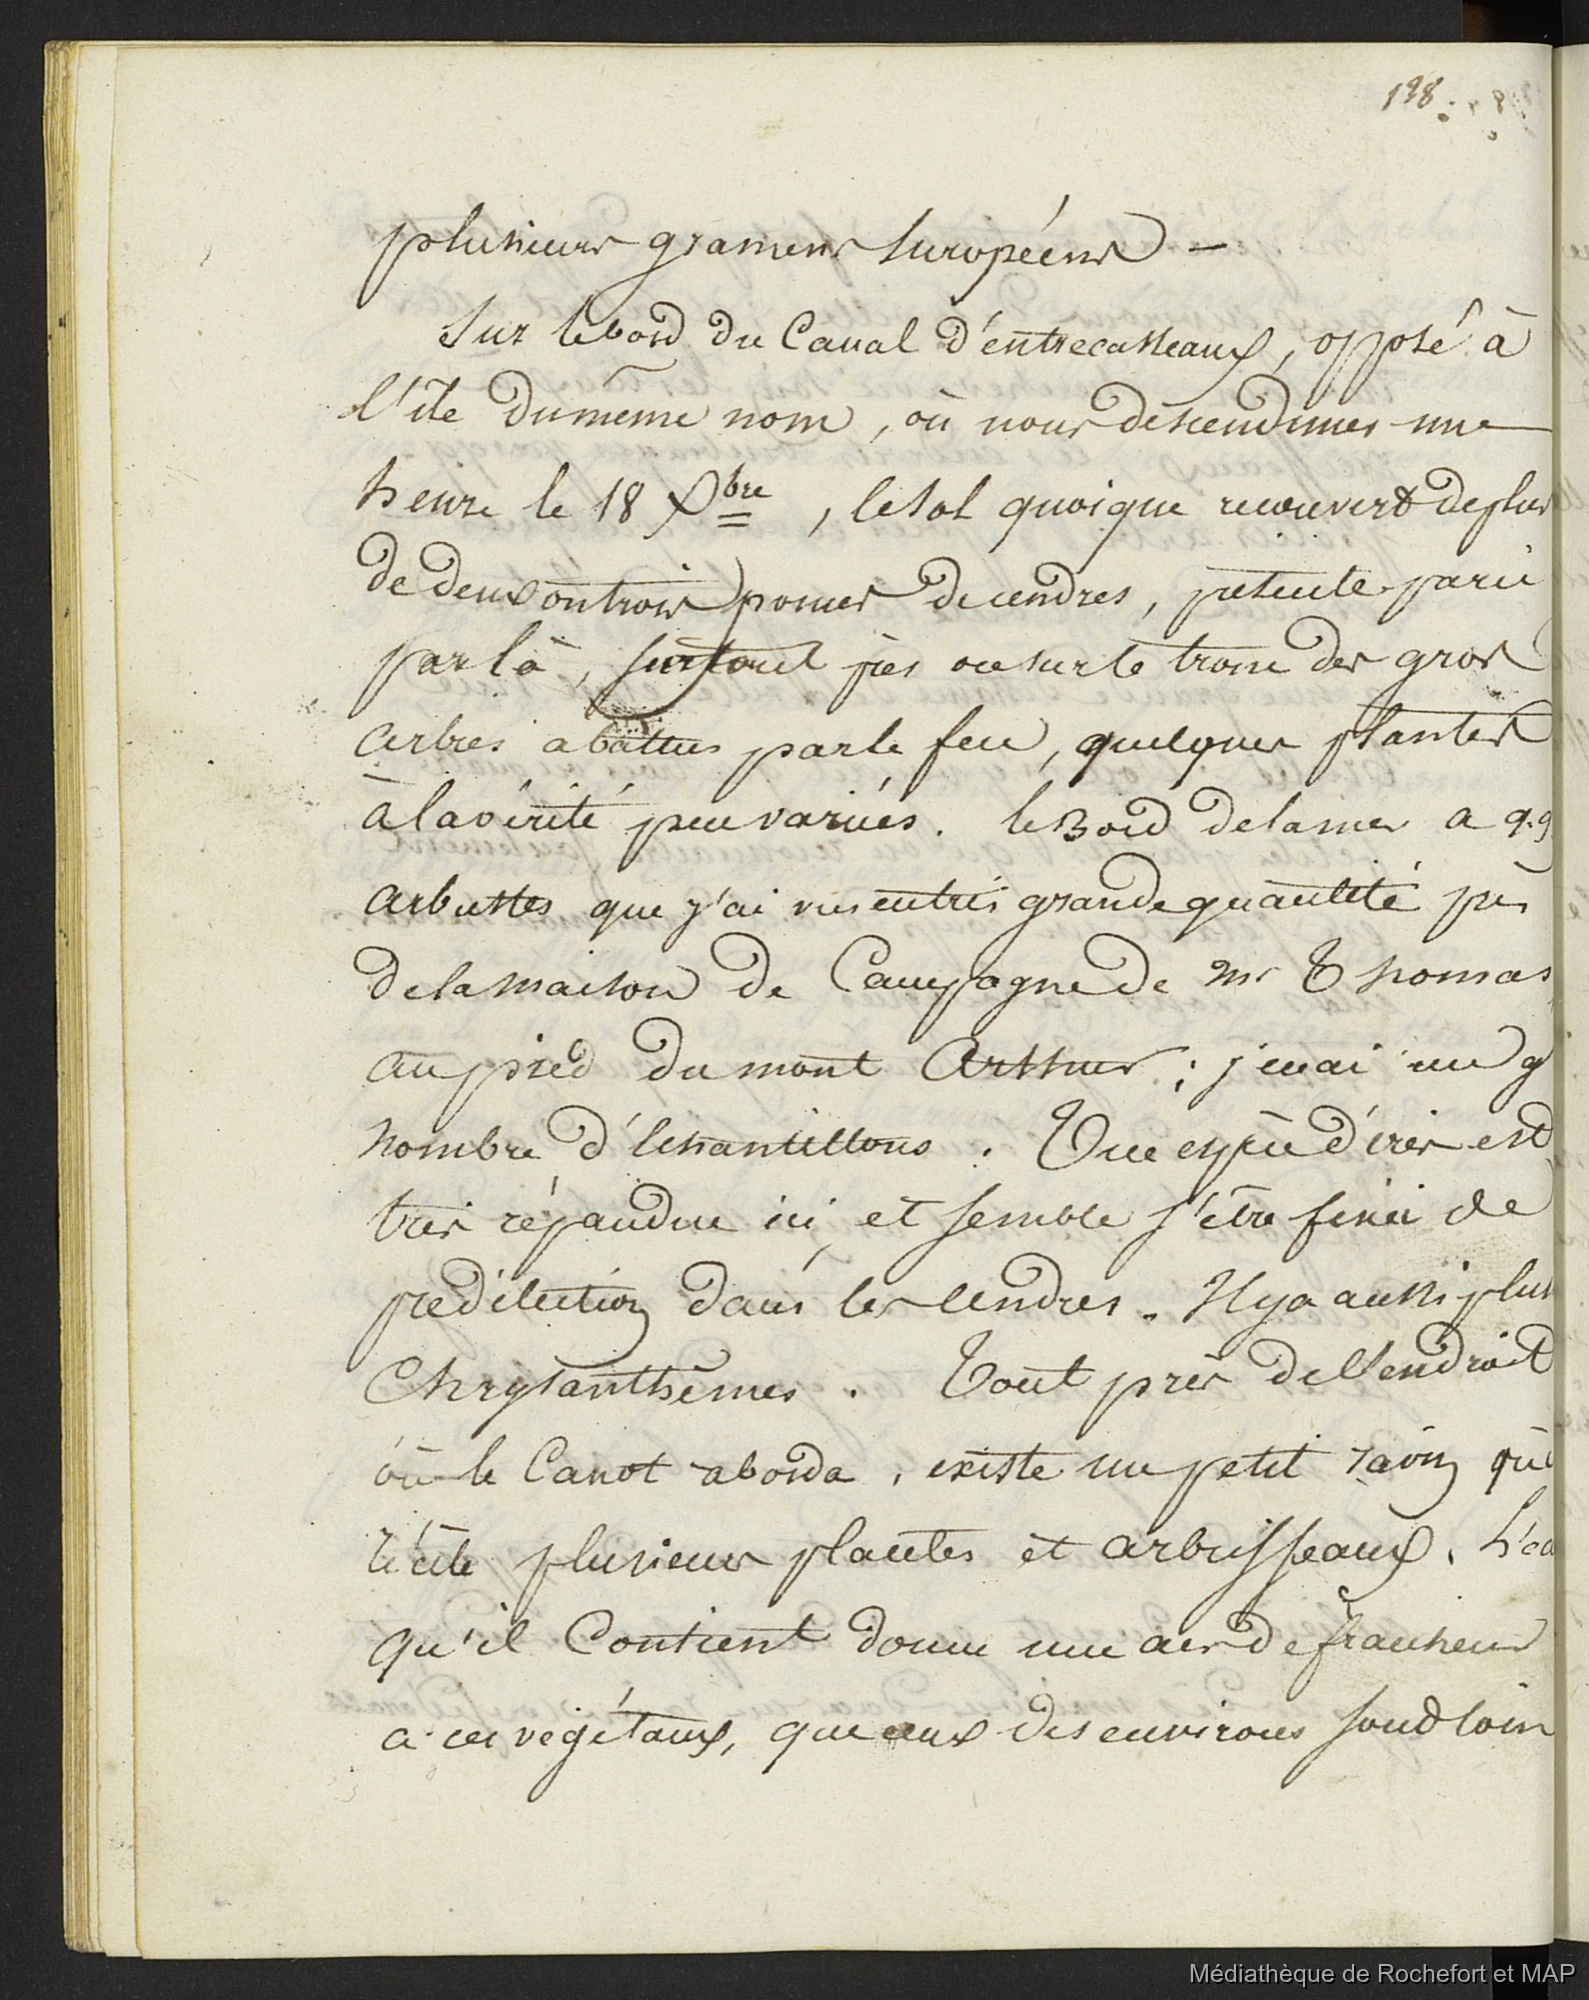 198.
plusieurs gramens Européens —
Sur le bord du Canal d'entrecasteaux, opposé à
l'île du même nom, où nous descendimes une
heure le 18 Xbre, le sol quoique recouvert de plus
de deux ou trois pouces de cendres, présente par ci
par là, surtout près ou sur le tronc des gros
arbres abattus par le feu, quelques plantes
à la vérité peu variées. le Bord de la mer a q.q
arbustes que j'ai vus en très grande quantité près
de la maison de Campagne de Mr Thomas
au pied du mont Arthur ; j'en ai un g
nombre d'échantillons. Une espèce d'iris est
très répandue ici, et semble s'être fixée de
prédilection dans les cendres. Il y a aussi plus
Chrysanthèmes. Tout près de l'endroit
où le Canot aborda, existe un petit ravin qui
recèle plusieurs plantes et arbrisseaux. L'ea
qu'il Contient donne une air de fraicheur
a ces végétaux, que ceux des environs sont loin
Médiathèque de Rochefort et MAP